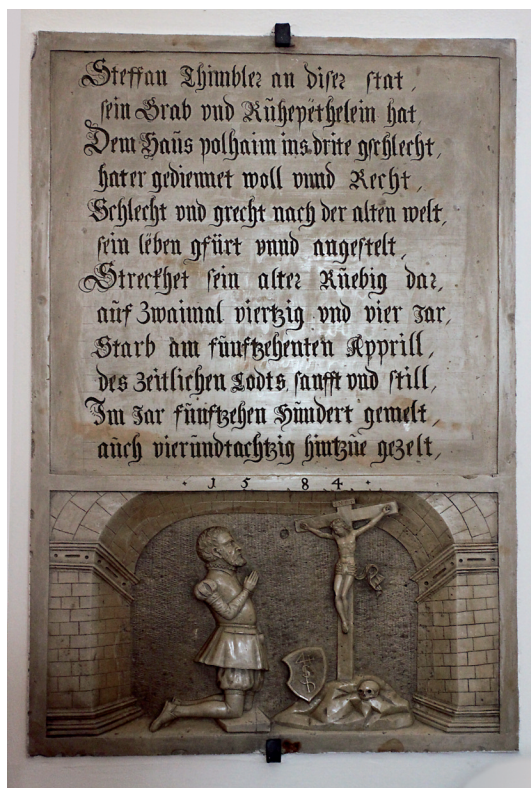 Steffan Thimbler an diser stat,
sein Grab vnd Rűhepëthelein hat,
Dem Haűs polhaim ins drite gschlecht,
hater gediennet woll vnnd Recht,
Schlecht vnd grecht nach der alten welt,
sein lëben gfürt vnnd angestelt,
Streckhet sein alter Rűebig dar,
aűf Zwaimal viertzig vnd vier Jar,
Starb am fűnftzehenten Apprill,
des Zeitlichen Todts sanfft vnd still,
Im Jar fűnftzehen Hűndert gemelt,
aűch vierűndtachtzig hintzűe gezelt,
1 5 8 4